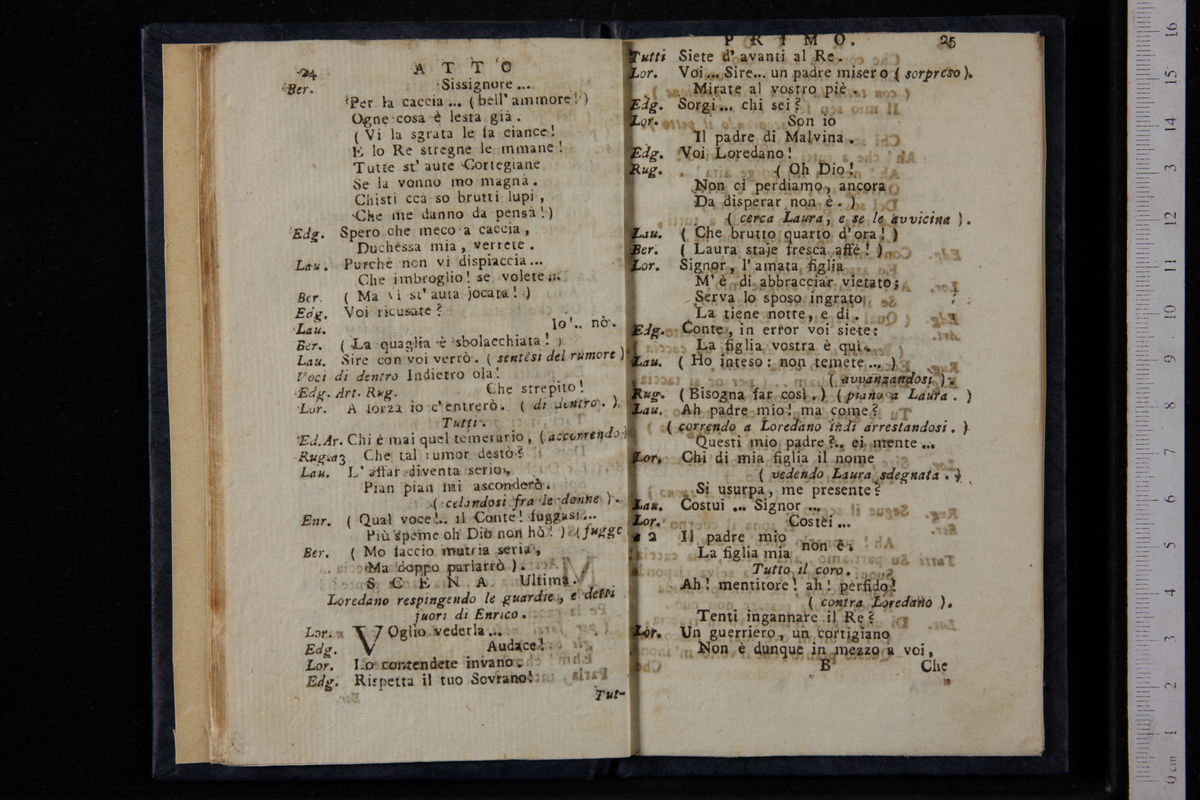 24
A T T O
Ber. Sissignore...
Per la caccia... (bell' ammore!)
Ogne cosa è lesta già.
(Vi la sgrata le fa ciance!
E lo Re stregne le mmane!
Tutte st' aute Cortegiane
Se la vonno mo magna.
Chisti cca so brutti lupi,
Che me danno da pensà!)
Edg. Spero che meco a caccia,
Duchessa mia, verrete.
Lau. Purchè non vi dispiaccia...
Che imbroglio! se volete...
Ber. (Ma vi st' auta jocata!)
Edg. Voi ricusate?
Lau. Io'.. nò.
Ber. (La quaglia è sbolacchiata!)
Lau. Sire con voi verrò. (sentesi del rumore)
Voci di dentro Indietro ola!
Edg. Art. Rug. Che strepito!
Lor. A forza io c'entrerò. (di dentro.)
Tutti.
Ed.Ar. Chi è mai quel temerario, (accorrendo)
Rug.a3 Che tal rumor destò?
Lau. L' affar diventa serio,
Pian pian mi asconderò.
(celandosi fra le donne).
Enr. (Qual voce!.. il Conte! fuggasi...
Più speme oh Dio non hò!) (fugge
Ber. (Mo faccio mutria seria,
Ma doppo parlarrò).
S C E N A Ultima.
Loredano respingendo le guardie, e detti
fuori di Enrico.
Lor. VOglio vederla...
Edg. Audace!
Lor. Lo contendete invano.
Edg. Rispetta il tuo Sovrano!
Tut-
P R I M O. 25
Tutti Siete d' avanti al Re.
Lor. Voi... Sire... un padre misero (sorpreso).
Mirate al vostro piè.
Edg. Sorgi... chi sei?
Lor. Son io
Il padre di Malvina.
Edg. Voi Loredano!
Rug. (Oh Dio!
Non ci perdiamo, ancora
Da disperar non è.)
(cerca Laura, e se le avvicina).
Lau. (Che brutto quarto d'ora!)
Ber. (Laura staje fresca affè!)
Lor. Signor, l'amata figlia
M'è di abbracciar vietato;
Serva lo sposo ingrato
La tiene notte, e dì.
Edg. Conte, in error voi siete:
La figlia vostra è quì.
Lau. (Ho inteso: non temete...)
(avvanzandosi).
Rug. (Bisogna far così.) (piano a Laura.)
Lau. Ah padre mio! ma come?
(correndo a Loredano indi arrestandosi.)
Questi mio padre?.. ei mente...
Lor. Chi di mia figlia il nome
(vedendo Laura sdegnata.)
Si usurpa, me presente?
Lau. Costui... Signor...
Lor. Costei...
a 2 Il padre mio
La figlia mia non è.
Tutto il coro.
Ah! mentitore! ah! perfido!
(contra Loredano).
Tenti ingannare il Re?
Lor. Un guerriero, un cortigiano
Non è dunque in mezzo a voi,
B Che